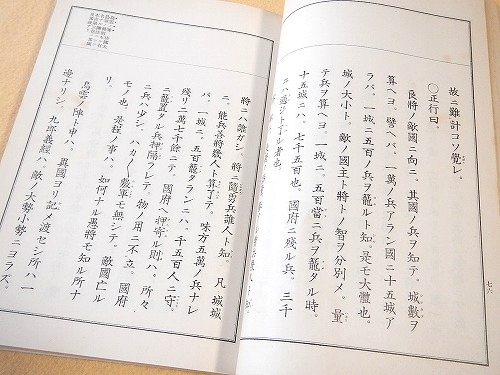 故ニ難計コソ覺レ。
〇正行曰。
良將ノ敵國ニ向ニ。其國ノ兵ヲ知テ。城數ヲ
算ヘヨ。譬ヘバ。一萬ノ兵アラン國ニ十五城ア
ラバ。一城ニ五百ノ兵ヲ籠ルト知。是モ大體也。
城ノ大小ト。敵ノ國主ト將トノ智ヲ分別メ。量
テ兵ヲ算ヘヨ。一城ニ。五百當ニ兵ヲ籠タル時。
十五城ニハ。七千五百也。國府ニ殘ル兵。三千
ニハ
將ニハ誰ガシ。將ニ隨勇兵誰人ト知。凡城城
ニ。能兵吾將幾人ト算ヘテ。味方五萬ノ兵ナレ
バ。一城ニ。二千五百籠タランニハ。千五百人ニ守。
殘リニ萬七千餘ニテ。國府ヘ押寄ル則ハ。所々
ニ籠置タル兵押隔ラレテ。物ノ用ニ不立。國府
ニ兵ハ少シ。ハカ〴〵敷軍モ無シテ。敵國亡ル
モノ也。是程ノ事ハ。如何ナル愚將モ知ル所ナ
リ。
鳥雲ノ陣ト申ハ。異國ヨリ記メ渡セシ所ハ。一
邊ナリシ。九郎義經ハ。敵ノ大勢小勢ニヨラズ。
七六